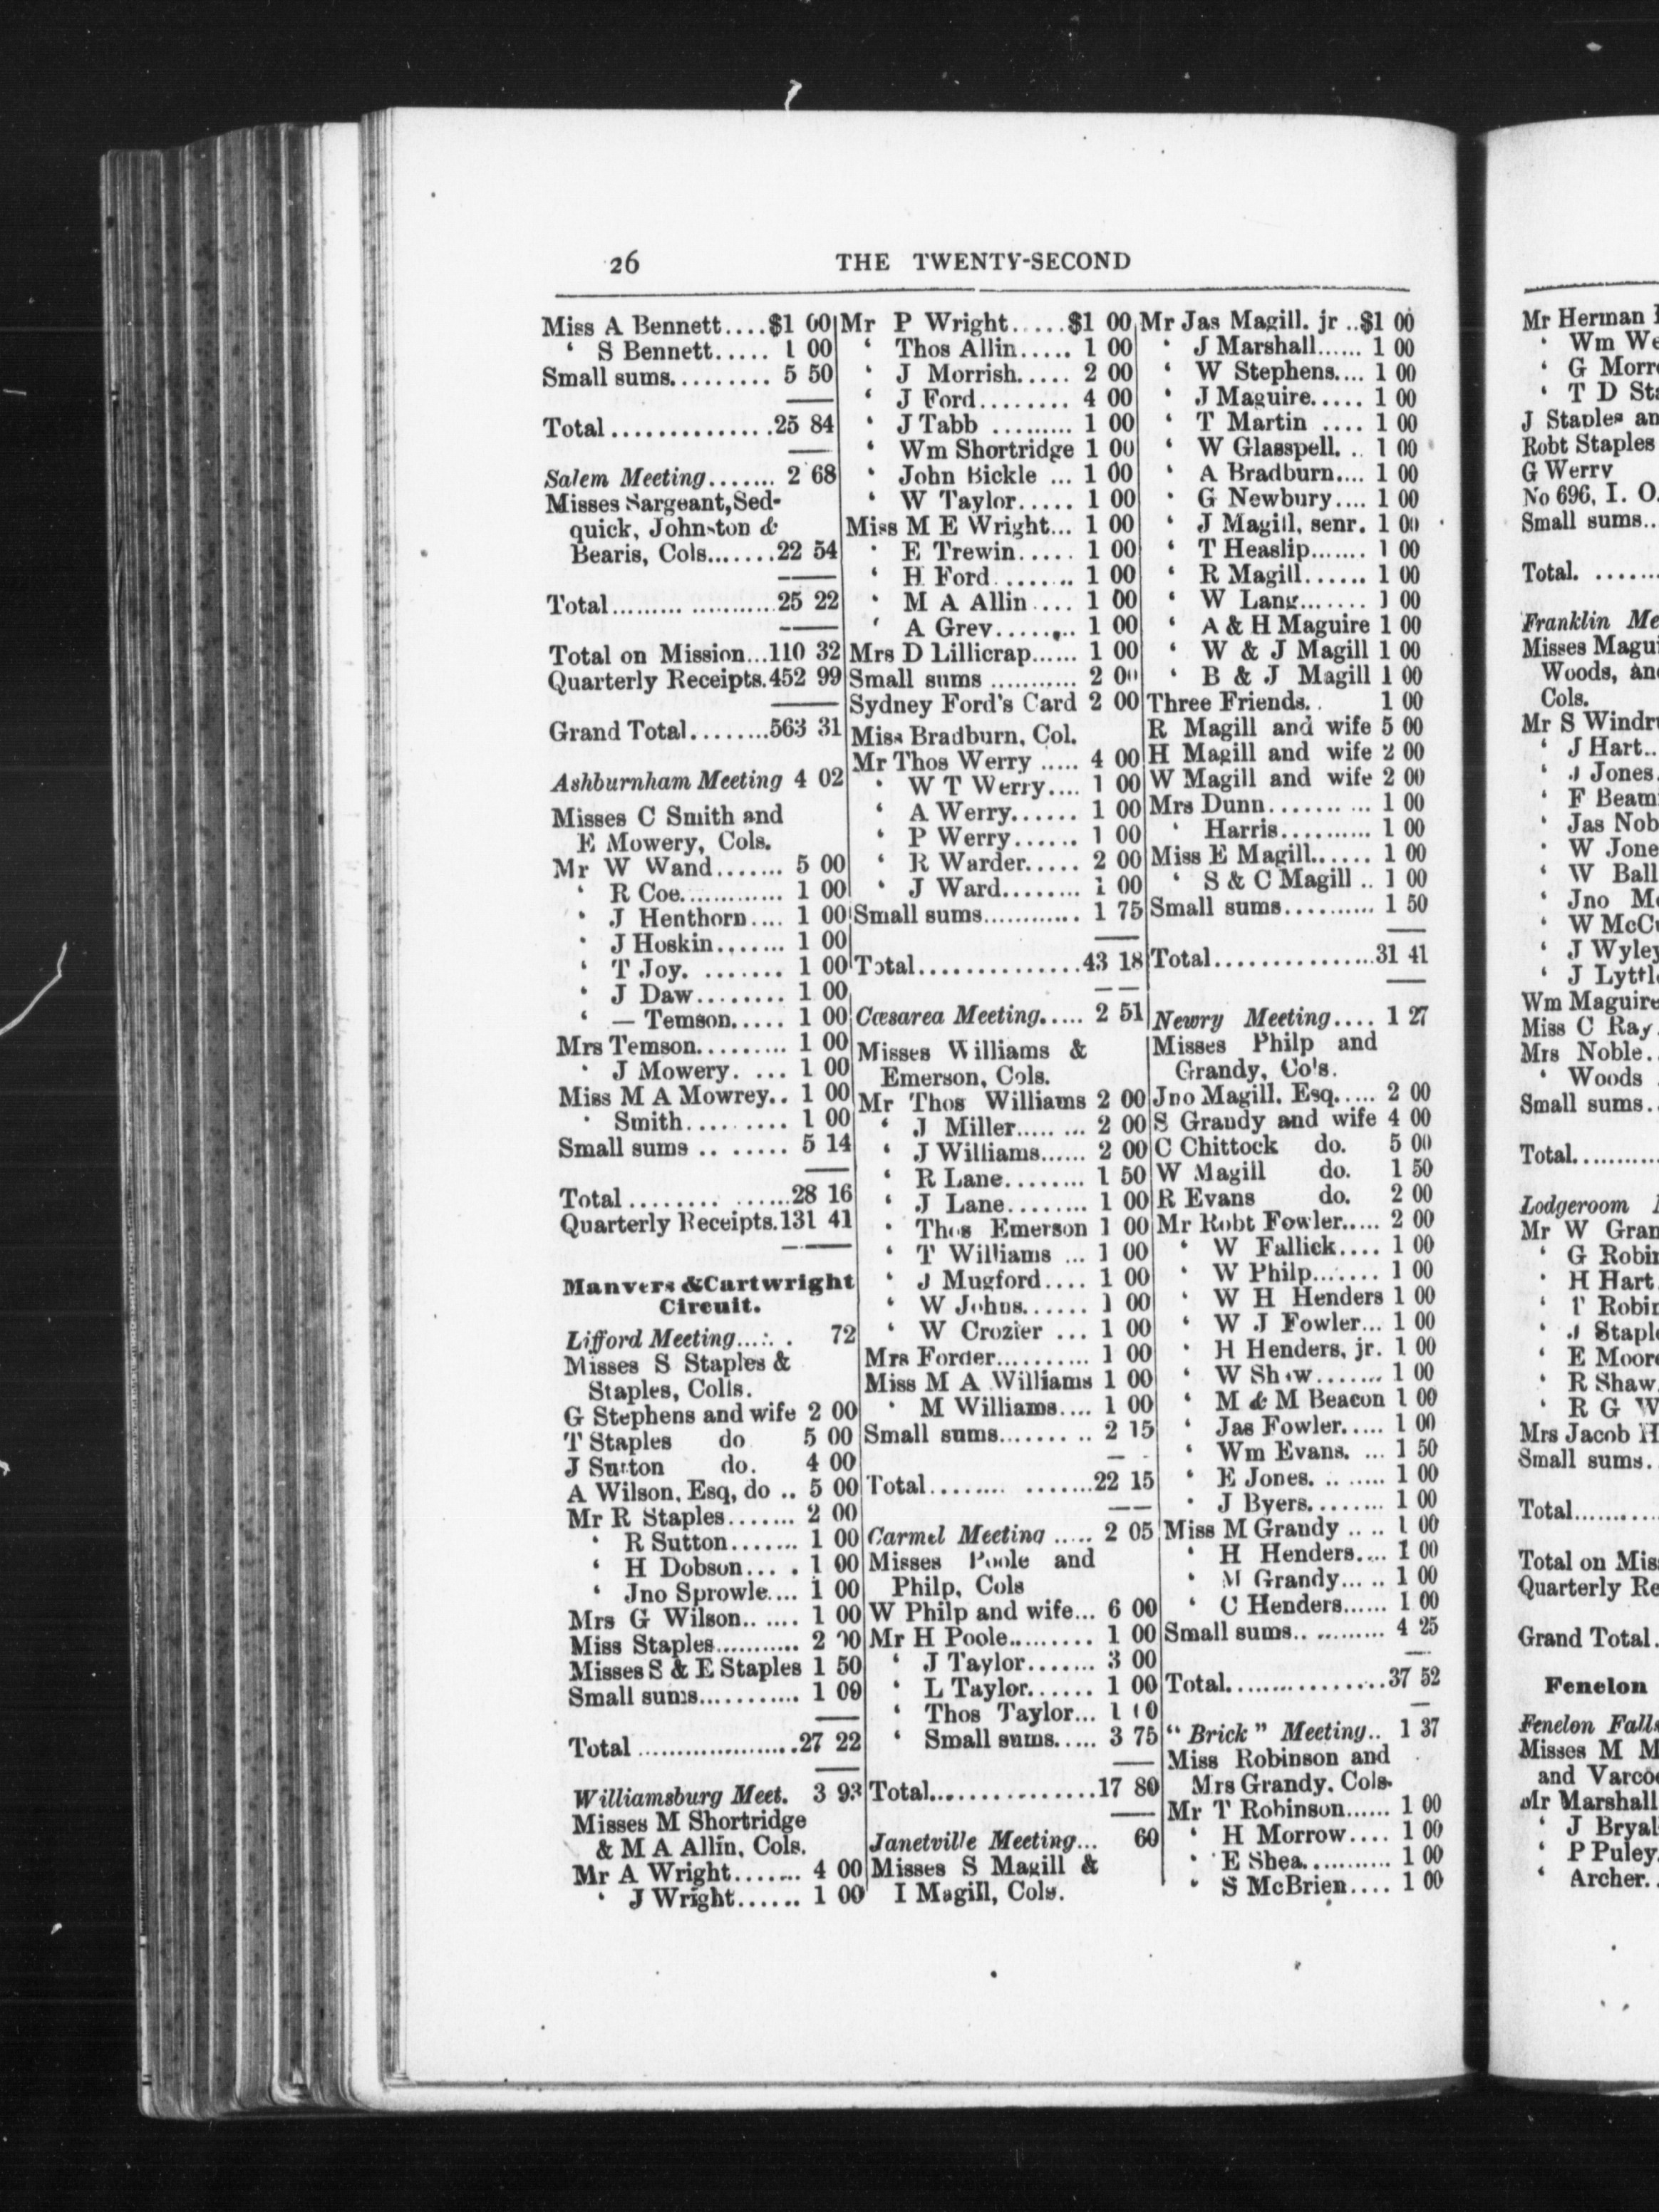 26
THE TWENTY-SECOND
Miss A Bennett....$1 00
‘ S Bennett..... 1 00
Small sums......... 5 50
Total..............25 84
Salem Meeting....... 2 68
Misses Sargeant,Sed-
quick, Johnston &
Bearis, Cols.......22 54
Total....................25 22
Total on Mission...110 32
Quarterly Receipts.452 99
Grand Total........563 31
Ashburnham Meeting 4 02
Misses C Smith and
E Mowery, Cols.
Mr W Wand....... 5 00
‘ R Coe............. 1 00
‘ J Henthorn.... 1 00
‘ J Hoskin....... 1 00
‘ T Joy. ........ 1 00
‘ J Daw........ 1 00
‘ — Temson..... 1 00
Mrs Temson......... 1 00
‘ J Mowery. ... 1 00
Miss M A Mowrey.. 1 00
‘ Smith.......... 1 00
Small sums .. ....... 5 14
Total ........ ......28 16
Quarterly Receipts.131 41
Manvers &Cartwright
Circuit.
Lifford Meeting...:. . 72
Misses S Staples &
Staples, Colls.
G Stephens and wife 2 00
T Staples do 5 00
J Sutton do. 4 00
A Wilson, Esq, do .. 5 00
Mr R Staples....... 2 00
‘ R Sutton....... 1 00
‘ H Dobson... . 1 00
‘ Jno Sprowle.... 1 00
Mrs G Wilson.. .... 1 00
Miss Staples........... 2 00
Misses S & E Staples 1 50
Small sums........... 1 00
Total ....................27 22
Williamsburg Meet. 3 93
Misses M Shortridge
& M A Allin, Cols.
Mr A Wright....... 4 00
‘ J Wright...... 1 00
Mr P Wright.....$1 00
‘ Thos Allin..... 1 00
‘ J Morrish..... 2 00
‘ J Ford........ 4 00
‘ J Tabb ......... 1 00
‘ Wm Shortridge 1 00
‘ John Bickle ... 1 00
‘ W Taylor..... 1 00
Miss M E Wright... 1 00
‘ E Trewin..... 1 00
‘ H Ford ....... 1 00
‘ M A Allin .... 1 00
‘ A Grey........ 1 00
Mrs D Lillicrap...... 1 00
Small sums ........... 2 00
Sydney Ford's Card 2 00
Miss Bradburn, Col.
Mr Thos Werry ..... 4 00
‘ W T Werry.... 1 00
‘ A Werry...... 1 00
‘ P Werry...... 1 00
‘ R Warder..... 2 00
‘ J Ward........ 1 00
Small sums............ 1 75
Total...............43 18
Cæsarea Meeting..... 2 51
Misses Williams &
Emerson, Cols.
Mr Thos Williams 2 00
‘ J Miller..... ... 2 00
‘ J Williams...... 2 00
‘ R Lane........ 1 50
‘ J Lane........ 1 00
‘ Thos Emerson 1 00
‘ T Williams ... 1 00
‘ J Mugford.... 1 00
‘ W Johns...... 1 00
‘ W Crozier ... 1 00
Mrs Forder.......... 1 00
Miss M A Williams 1 00
‘ M Williams.... 1 00
Small sums....... .. 2 15
Total........ .......22 15
Carmel Meeting ..... 2 05
Misses Poole and
Philp, Cols
W Philp and wife... 6 00
Mr H Poole......... 1 00
‘ J Taylor....... 3 00
‘ L Taylor...... 1 00
‘ Thos Taylor... 1 00
‘ Small sums..... 3 75
Total................17 80
Janetville Meeting... 60
Misses S Magill &
I Magill, Cols.
Mr Jas Magill. jr ..$1 00
‘ J Marshall...... 1 00
‘ W Stephens.... 1 00
‘ J Maguire..... 1 00
‘ T Martin .... 1 00
‘ W Glasspell. .. 1 00
‘ A Bradburn.... 1 00
‘ G Newbury.... 1 00
‘ J Magill, senr. 1 00
‘ T Heaslip....... 1 00
‘ R Magill...... 1 00
‘ W Lang....... 1 00
‘ A & H Maguire 1 00
‘ W & J Magill 1 00
‘ B & J Magill 1 00
Three Friends. . 1 00
R Magill and wife 5 00
H Magill and wife 2 00
W Magill and wife 2 00
Mrs Dunn....... ... 1 00
‘ Harris.......... 1 00
Miss E Magill...... 1 00
‘ S & C Magill .. 1 00
Small sums.......... 1 50
Total...............31 41
Newry Meeting.... 1 27
Misses Philp and
Grandy, Co's.
Jno Magill, Esq..... 2 00
S Grandy and wife 4 00
C Chittock do. 5 00
W Magill do. 1 50
R Evans do. 2 00
Mr Robt Fowler..... 2 00
‘ W Fallick.... 1 00
‘ W Philp....... 1 00
‘ W H Henders 1 00
‘ W J Fowler... 1 00
‘ H Henders, jr. 1 00
‘ W Shaw....... 1 00
‘ M & M Beacon 1 00
‘ Jas Fowler..... 1 00
‘ Wm Evans. ... 1 50
‘ E Jones. .. ..... 1 00
‘ J Byers........ 1 00
Miss M Grandy .. .. 1 00
‘ H Henders.... 1 00
‘ M Grandy... .. 1 00
‘ C Henders...... 1 00
Small sums.. ......... 4 25
Total.................37 52
“ Brick ” Meeting.. 1 37
Miss Robinson and
Mrs Grandy, Cols.
Mr T Robinson...... 1 00
‘ H Morrow.... 1 00
‘ E Shea........... 1 00
‘ S McBrien.... 1 00
Mr Herman
‘ Wm
‘ G
‘ T D
J Staples
Robt Staples
G Werry
No 696, I. O.
Small sums..
Total. .......
Franklin
Misses
Woods,
Cols.
Mr S
‘ J Hart..
‘ J Jones.
‘ F
‘ Jas
‘ W
‘ W Ball
‘ Jno
‘ W
‘ J
‘ J
Wm Maguire
Miss C Ray
Mrs Noble..
‘ Woods
Small sums..
Total..........
Lodgeroom
Mr W
‘ G
‘ H Hart
‘ T
‘ J
‘ E
‘ R Shaw
‘ R G
Mrs Jacob
Small sums.
Total..........
Total on
Quarterly
Grand Total.
Fenelon
Fenelon
Misses M
and
Mr Marshall
‘ J
‘ P Puley.
‘ Archer..